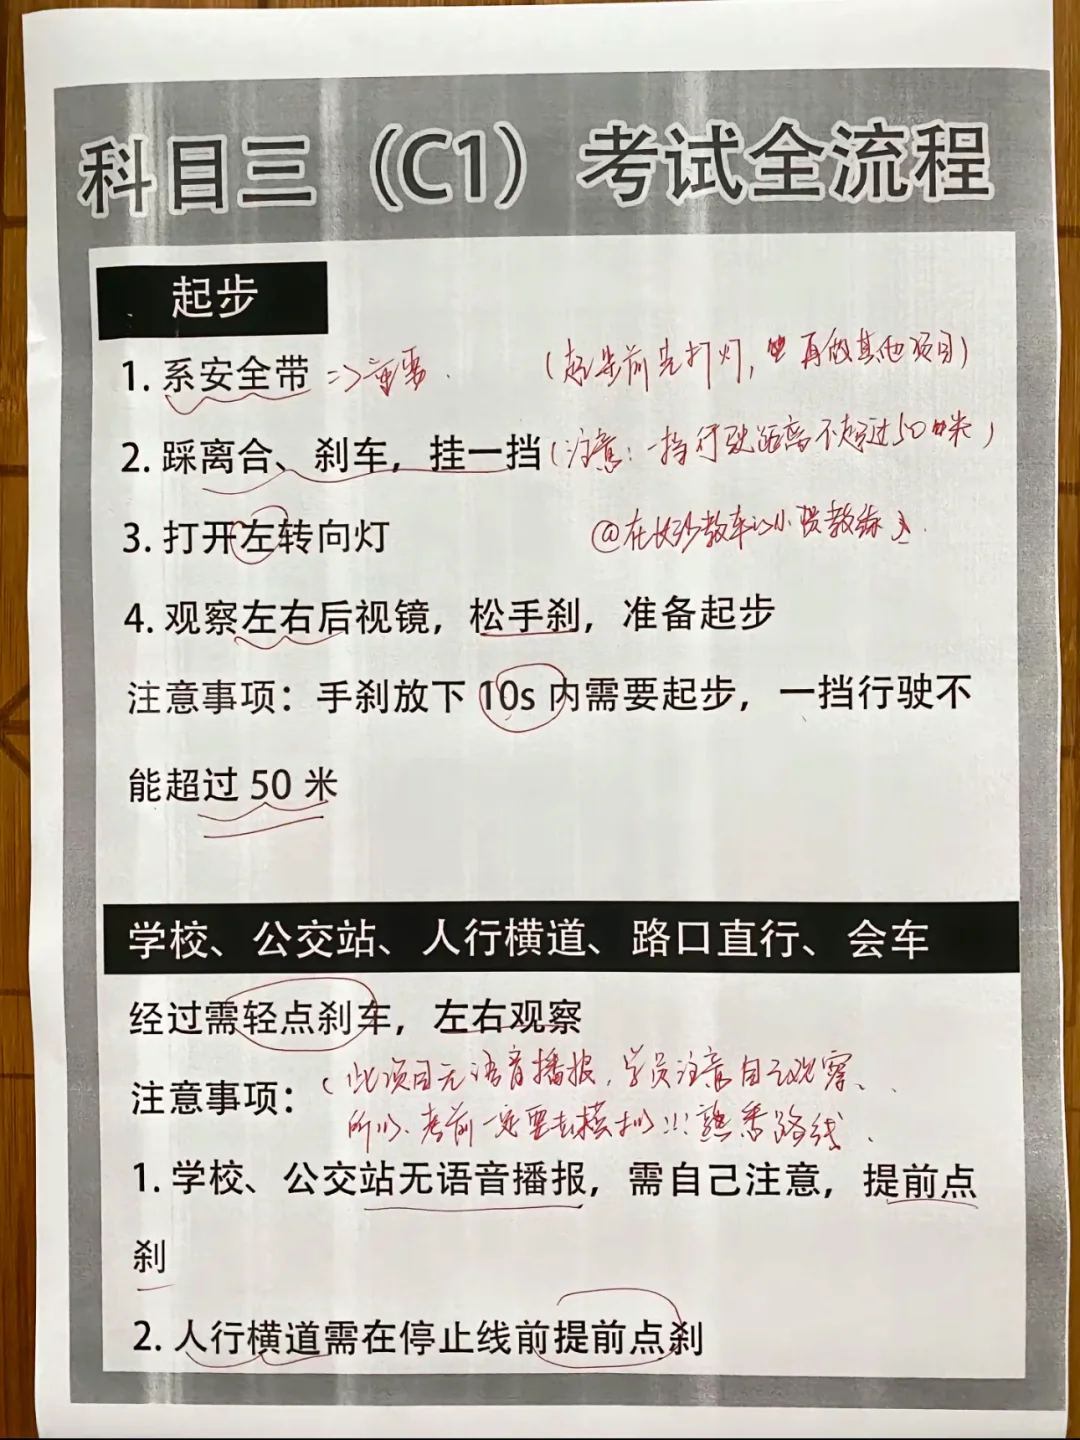 科目三（C1）考试全流程
起步
1. 系安全带 => 重要.
（起步前先打灯，再做其他项目）
2. 踩离合、刹车，挂一挡（注意：一挡行驶距离不超过50米）
3. 打开左转向灯
@在长沙教车的小
4. 观察左右后视镜，松手刹，准备起步
注意事项：手刹放下 10s 内需要起步，一挡行驶不
能超过 50 米
学校、公交站、人行横道、路口直行、会车
经过需轻点刹车，左右观察
注意事项：（此项目无语音播报，学员注意自己观察、
所以、考前一定要去模拟!!!熟悉路线.
1. 学校、公交站无语音播报，需自己注意，提前点
刹
2. 人行横道需在停止线前提前点刹